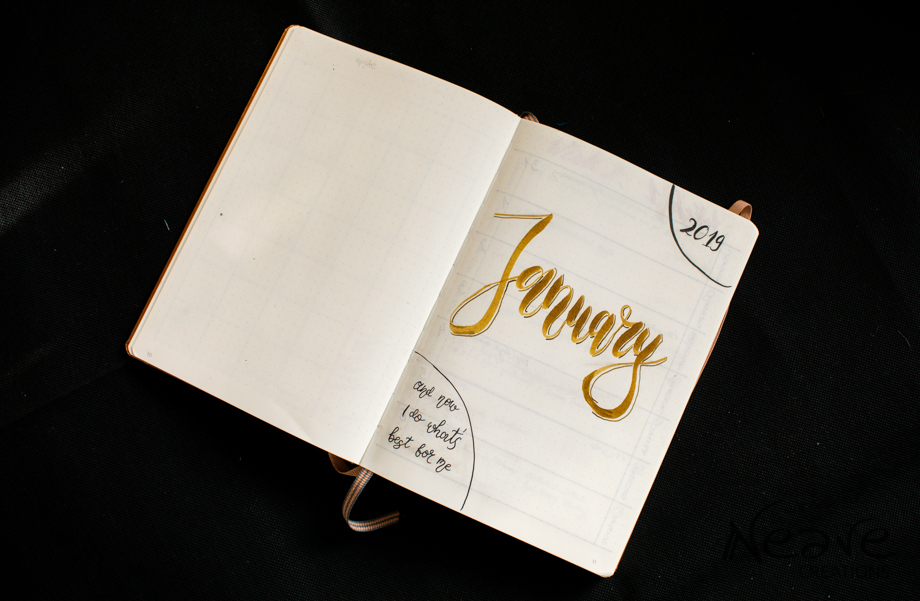 2019
January
and now
I do what's
best for me
Neave
CREATIONS